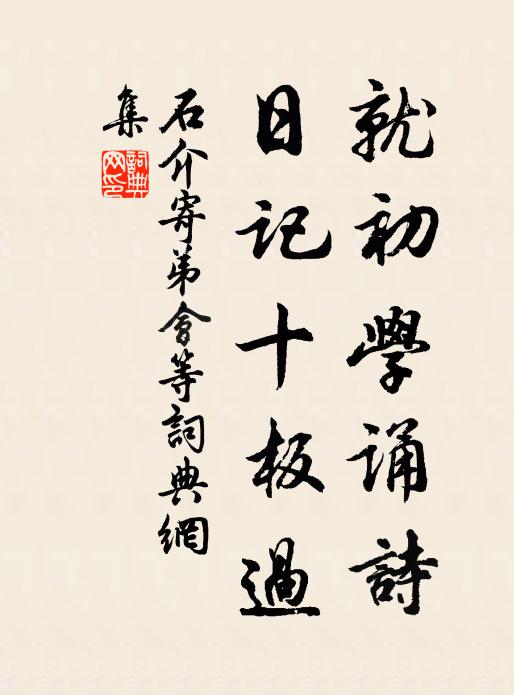 就初學誦詩
日記十板過
石介寄弟會等詞典網
集
詞典網印